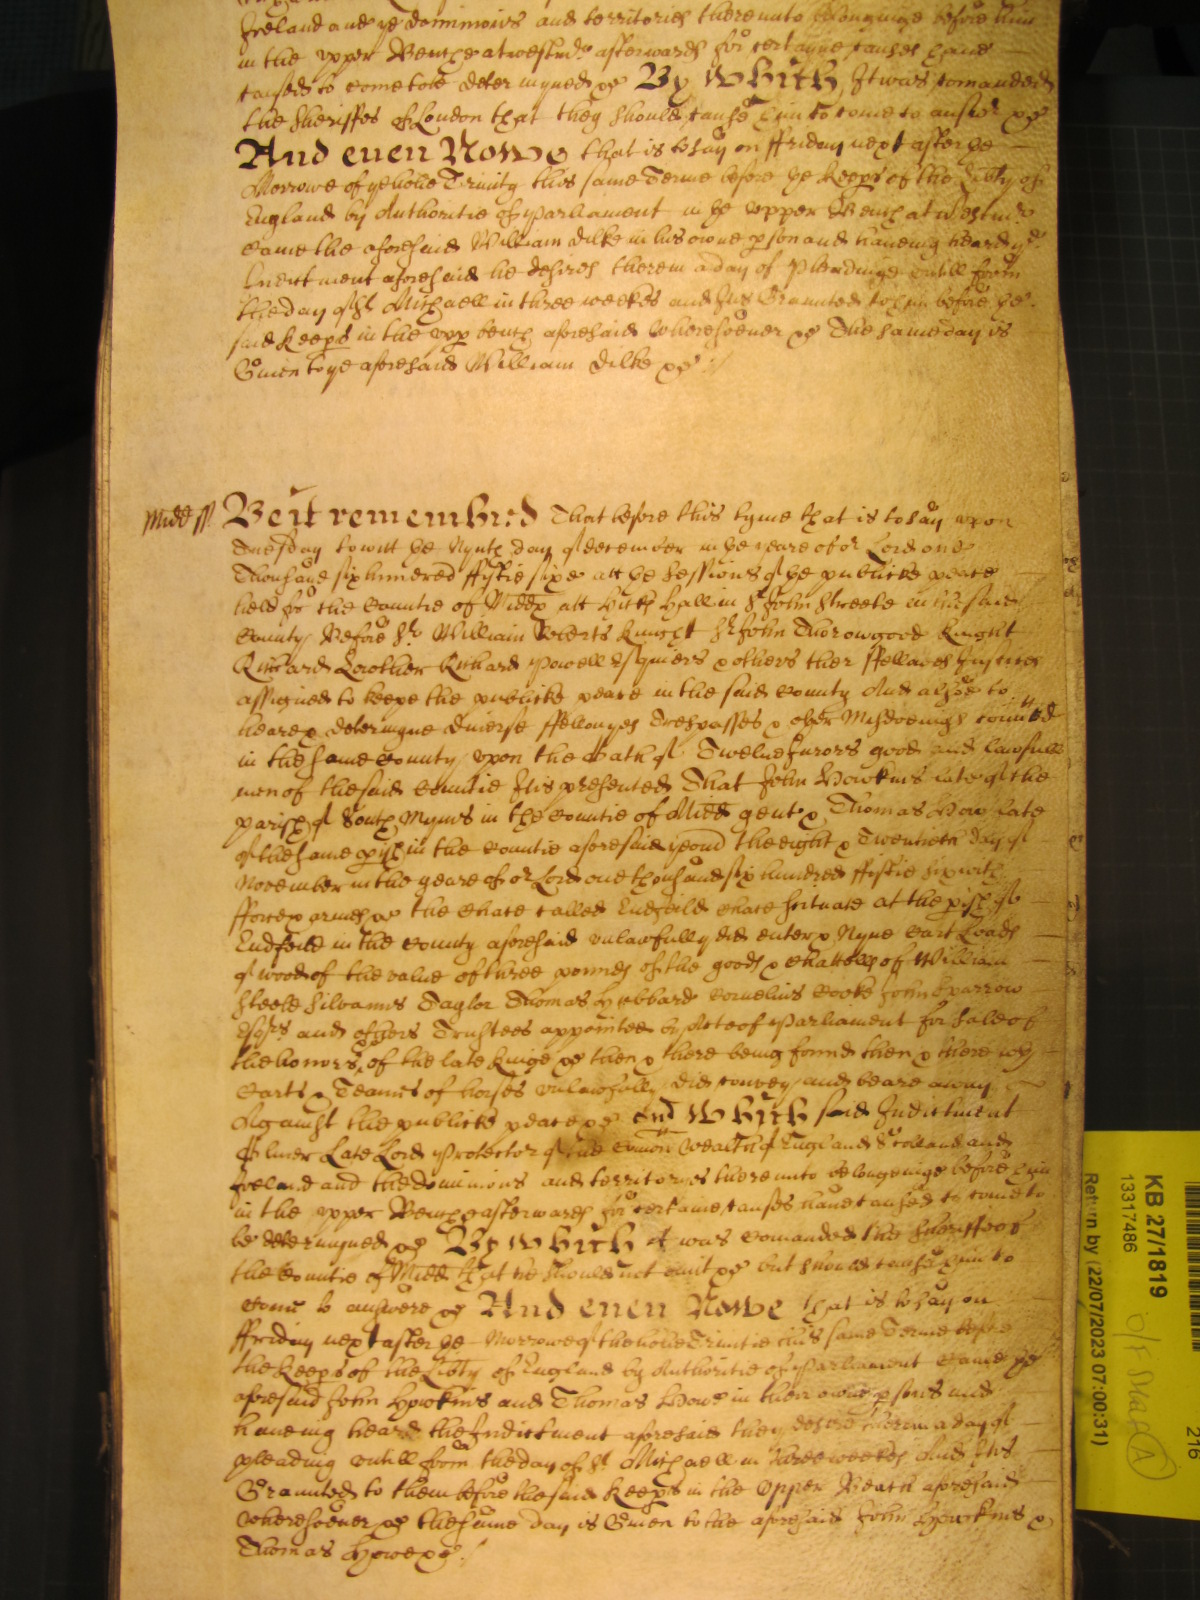 Ireland and ye dominions and territories thereunto belonginge before him
in the upper Bench at westmr afterwards for certayne causes have
caused to come to be determyned &c By Which It was comanded
the Sheriffes of London that they should cause him to come to answr &c
And even Nowe that is to say on ffriday next after ye
Morrowe of ye holie Trinity this same Terme before ye Keeps of the Libty of
England by Authoritie of Parliament in ye upper Bench at Westmr
came the aforesaid William Dilke in his owne pson and haveing heard ye
Indictment aforesaid he desires therein a day of Pleadinge untill from
the day of St Michaell in three weekes and It is Graunted to him before ye
said Keeps in the upp bench aforesaid wheresoever &c The same day is
Given to ye aforesaid William Dilke &c
Midd ss. Be it remembred That before this tyme that is to say upon
Tuesday to witt ye Nynth day of december in ye yeare of or Lord one
Thousand six hundred fiftie sixe att ye Sessions of ye publicke peace
held for the Countie of Middx att Hicks Hall in St John Streete in the said
County Before Sr William Roberts Knight Sr John Thorowgood Knight
Richard Lowther Richard Powell Esquiers & others their ffellowes Justices
assigned to keepe the publicke peace in the said County And alsoe to
heare & determyne diverse ffellonyes Trespasses & other Misdoeings comitted
in the same County upon the Oath of Twelve Jurors good and lawfull
men of the said Countie It is presented That John Howkins late of the
parish of South Myms in the Countie of Midd gent & Thomas How late
of the same pish in the Countie aforesaid yeom the eight & Twentieth day of
November in the yeare of or Lord one thousand six hundred fiftie six with
fforce & armes &c the Chace called Endfeild Chace scituate at the pish of
Endfeild in the County aforesaid unlawfully did enter & Nyne Cart Loads
of wood of the value of three pounds of the goods & Chattells of William
Steele Silvanus Taylor Thomas Hubbard Cornelius Cooke John Sparrow
Esqrs and others Trustees appointed by Acte of Parliament for sale of
the honors &c of the late Kinge &c then & there being found then & there with
Carts & Teames of horses unlawfully did convey and beare away
Against the publicke peace &c And Which said Indictment
Oliver Late Lord Protector of the Comon wealth of England Scotland and
Ireland and the Dominions and territories thereunto belongeinge before him
in the upper Bench afterwards for certaine causes have caused to come to
be determyned &c By Which it was comanded the Sherriffe of
the Countie of Midd that he should not omitt &c but should cause them to
come to answere &c And even Nowe that is to say on
ffriday next after ye Morrowe of the holie Trinitie this same Terme before
the Keeps of the Libty of England by Authoritie of Parliament came ye
aforesaid John Howkins and Thomas Howe in their owne psons and
haveing heard the Indictment aforesaid they desire therein a day of
pleading untill from the day of St Michaell in three weekes And It is
Graunted to them before the said Keeps in the Upper Bench aforesaid
wheresoever &c the same day is Given to the aforesaid John Howkins &
Thomas Howe &c
KB 27/1819
13317486
Return by (22/07/2023 07:00:31)
216
A